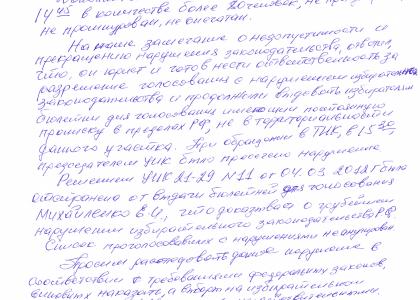 14 45 в количестве более 20 человек, не
не прошнурован, не опечатан.
На наше замечание о недопустимости и
прекращению нарушения законодательства, ответил,
что, он юрист и готов нести ответственность за
разрешение голосования с нарушением избирательного
законодательства и продолжили выдавать избирателям
бюллетени для голосования имеющим постоянную
прописку в пределах РФ, не в территориальности
данного участка. При обращении в ТИК, в 15 30
председателем УИК было проведено нарушение
Решением УИК 21-29 N 11 от 04.03.2012 г было
отстранена от выдачи бюллетней для голосования
Михайленко Е.И., что доказывает о грубейшем
нарушении избирательного законодательства РФ.
Список проголосовавших с нарушениями не
Просим расследовать данное нарушение в
соответствии с требованиями федеральных законов,
виновных наказать, а выборы на избирательном